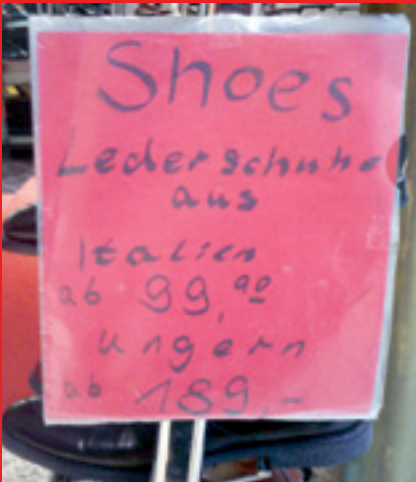 Shoes
Lederschuhe
aus
Italien
ab 99,90
ungern
ab 189,-